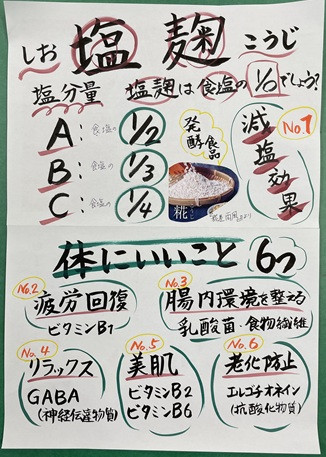 しお 塩麹 こうじ
塩分量 塩麹は食塩の1/○でしょう?
A:食塩の 1/2
B:食塩の 1/3
C:食塩の 1/4
発酵食品
糀
No.1
減塩効果
体にいいこと 6つ
No.2
疲労回復
ビタミンB1
No.3
腸内環境を整える
乳酸菌・食物繊維
No.4
リラックス
GABA
(神経伝達物質)
No.5
美肌
ビタミンB2
ビタミンB6
No.6
老化防止
エルゴチオネイン
(抗酸化物質)